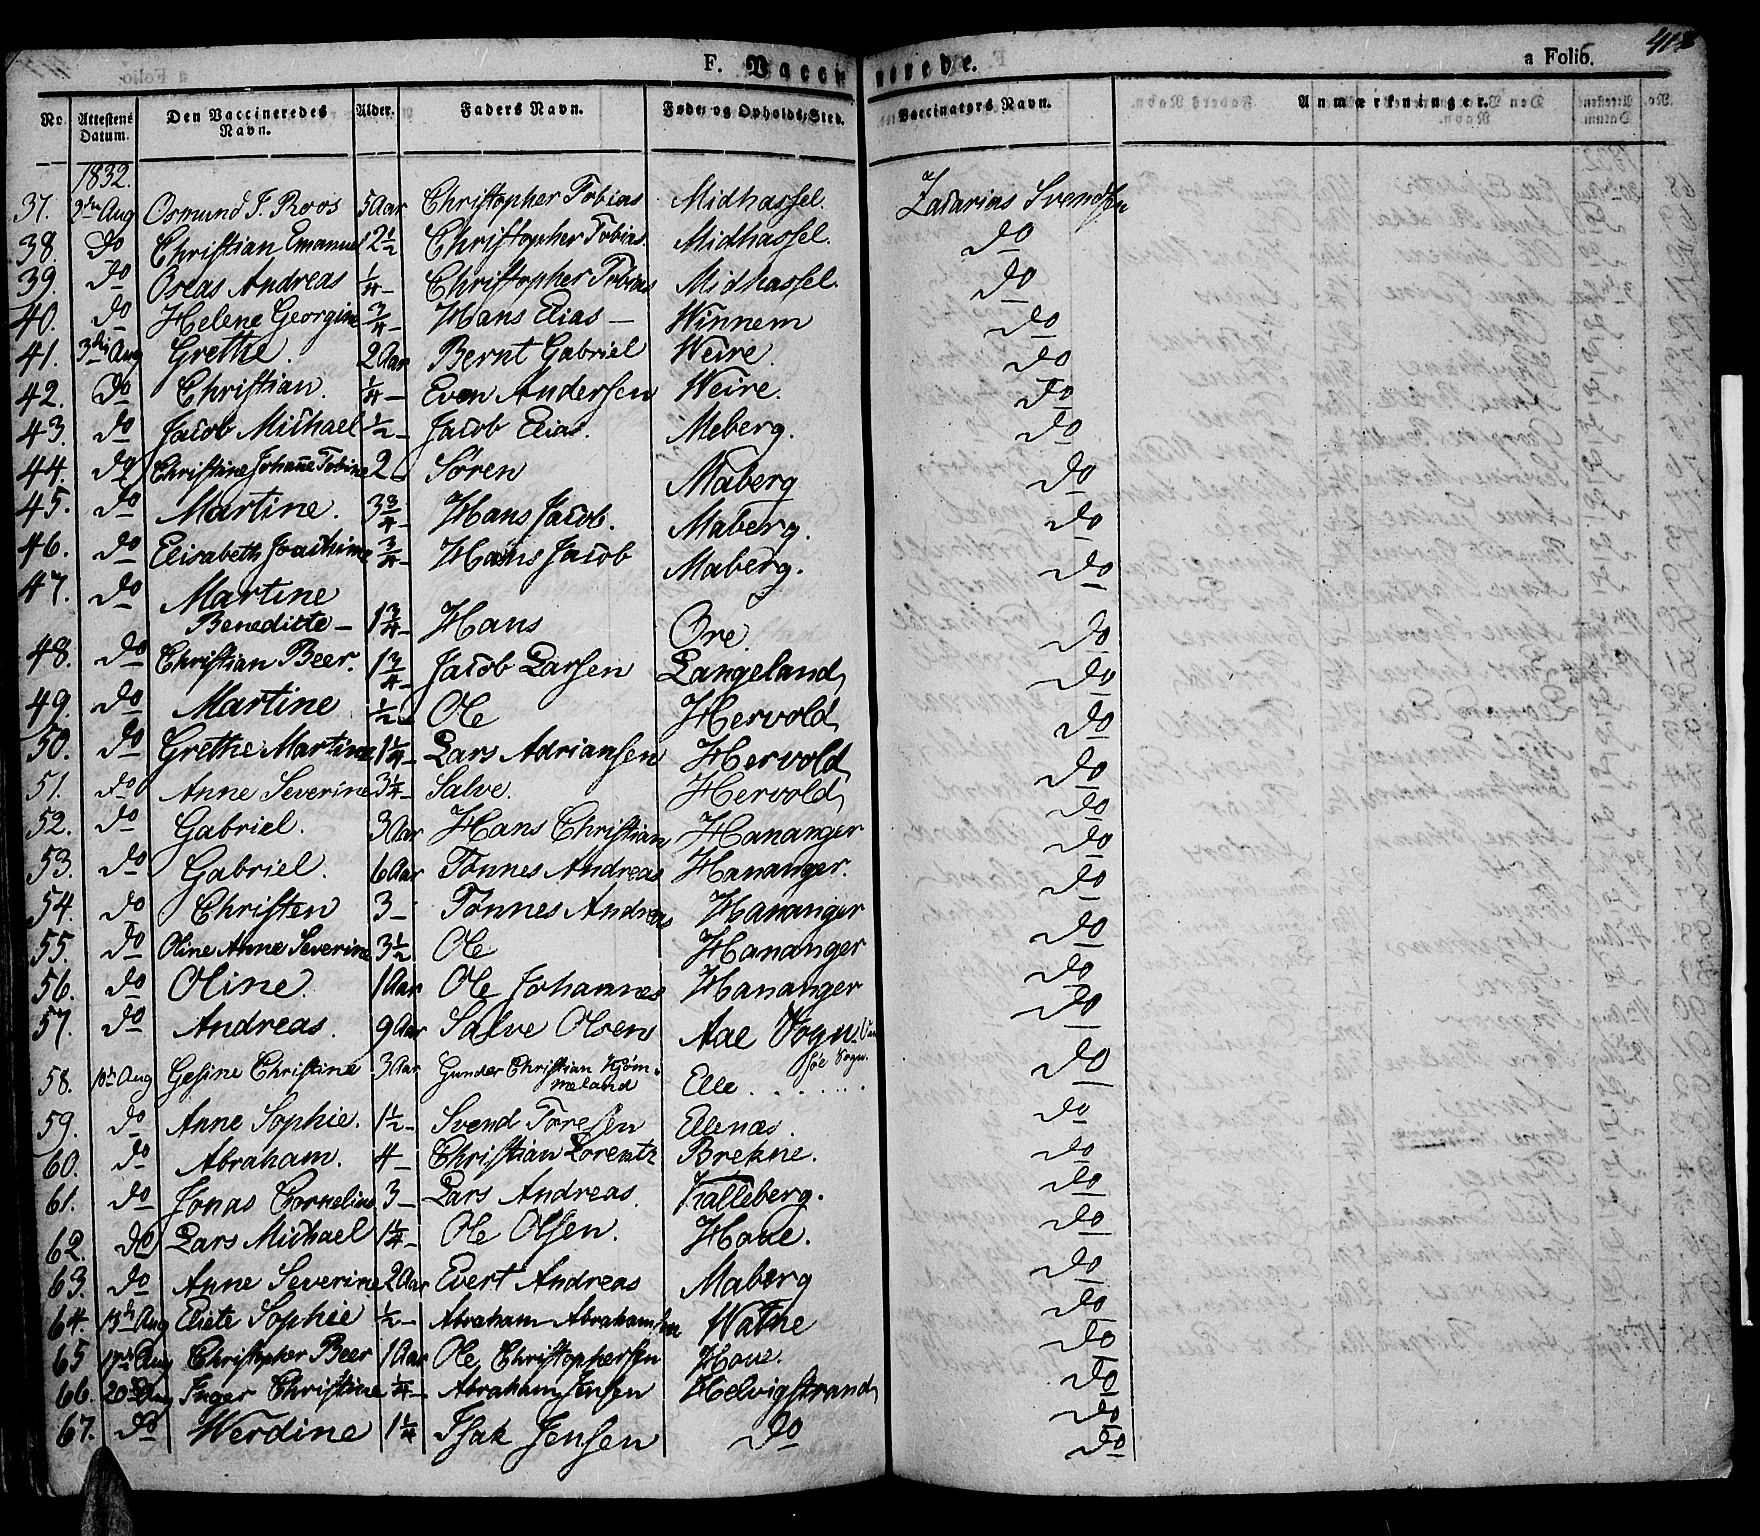 F. Vaccinerede. a Folio. 413
No. Attestens Datum. Den Vaccineredes Navn. Alder. Faders Navn. Føde- og Opholds-Sted. Vaccinators Navn. Anmærkninger.
1832.
37. 2den Aug Osmund J. Roos 5 Aar Christopher Tobias Midhassel. Zacarias Svendsen
38. do Christian Emanuel 2½ Christopher Tobias. Midhassel. do
39. do Oseas Andreas ¼ – Christopher Tobias Midhassel. do
40. do Helene Georgine ¾ – Hans Elias – Winnem do
41. 3die Aug Grethe. 2 Aar Bernt Gabriel Weire. do
42. do Christian. ¼ – Even Andersen Weire. do
43. do Jacob Michael ½ – Jacob Elias. Meberg. do
44. do Christine Johanne Tobine 2 – Søren Maberg do
45. do Martine. 3¾ – Hans Jacob. Maberg. do
46. do Elisabeth Joachime ¾ – Hans Jacob Maberg. do
47. do Martine
Benedicte – 1¾ – Hans Øre. do
48. do Christian Beer. 1¾ – Jacob Larsen Langeland do
49. do Martine ½ – Ole Hervold do
50. do Grethe Martine 1¼ – Lars Adriansen Hervold do
51. do Anne Severine 3¼ – Salve. Hervold do
52. do Gabriel. 3 Aar Hans Christian Hananger do
53. do Gabriel. 6 Aar Tønnes Andreas Hananger. do
54. do Christen 3 – Tønnes Andreas Hananger do
55. do Oline Anne Severine 3½ Ole Hananger do
56. do Oline. 1 Aar Ole Johannes Hananger do
57. do Andreas. 9 Aar Salve Olsen Aae Sogn. do
søe Sogn.
58. Aug Gesine Christine 3 Aar Gunder Christian Kjøm-
meland Elle . . . . . do
59. do Anne Sophie. 1½ – Svend Toresen Ellenæs. do
60. do Abraham. 4 – Christian Lorentz Brekne. do
61. do Jonas Cornelius 3 – Lars Andreas. Kalleberg. do
62. do Lars Michael 1¼ – Ole Olsen. Houe. do
63. do Anne Severine 2 Aar Evert Andreas Maberg do
64. 13de Aug Eliete Sophie ½ – Abraham Abrahamsen Watne do
65 17de Aug Christopher Beer 1 Aar Ole Christophersen Houe. do
66. 20de Aug Inger Christine ¼ – Abraham Jensen Helvigstrand do
67. do Werdine 1¼ Isak Jensen do do